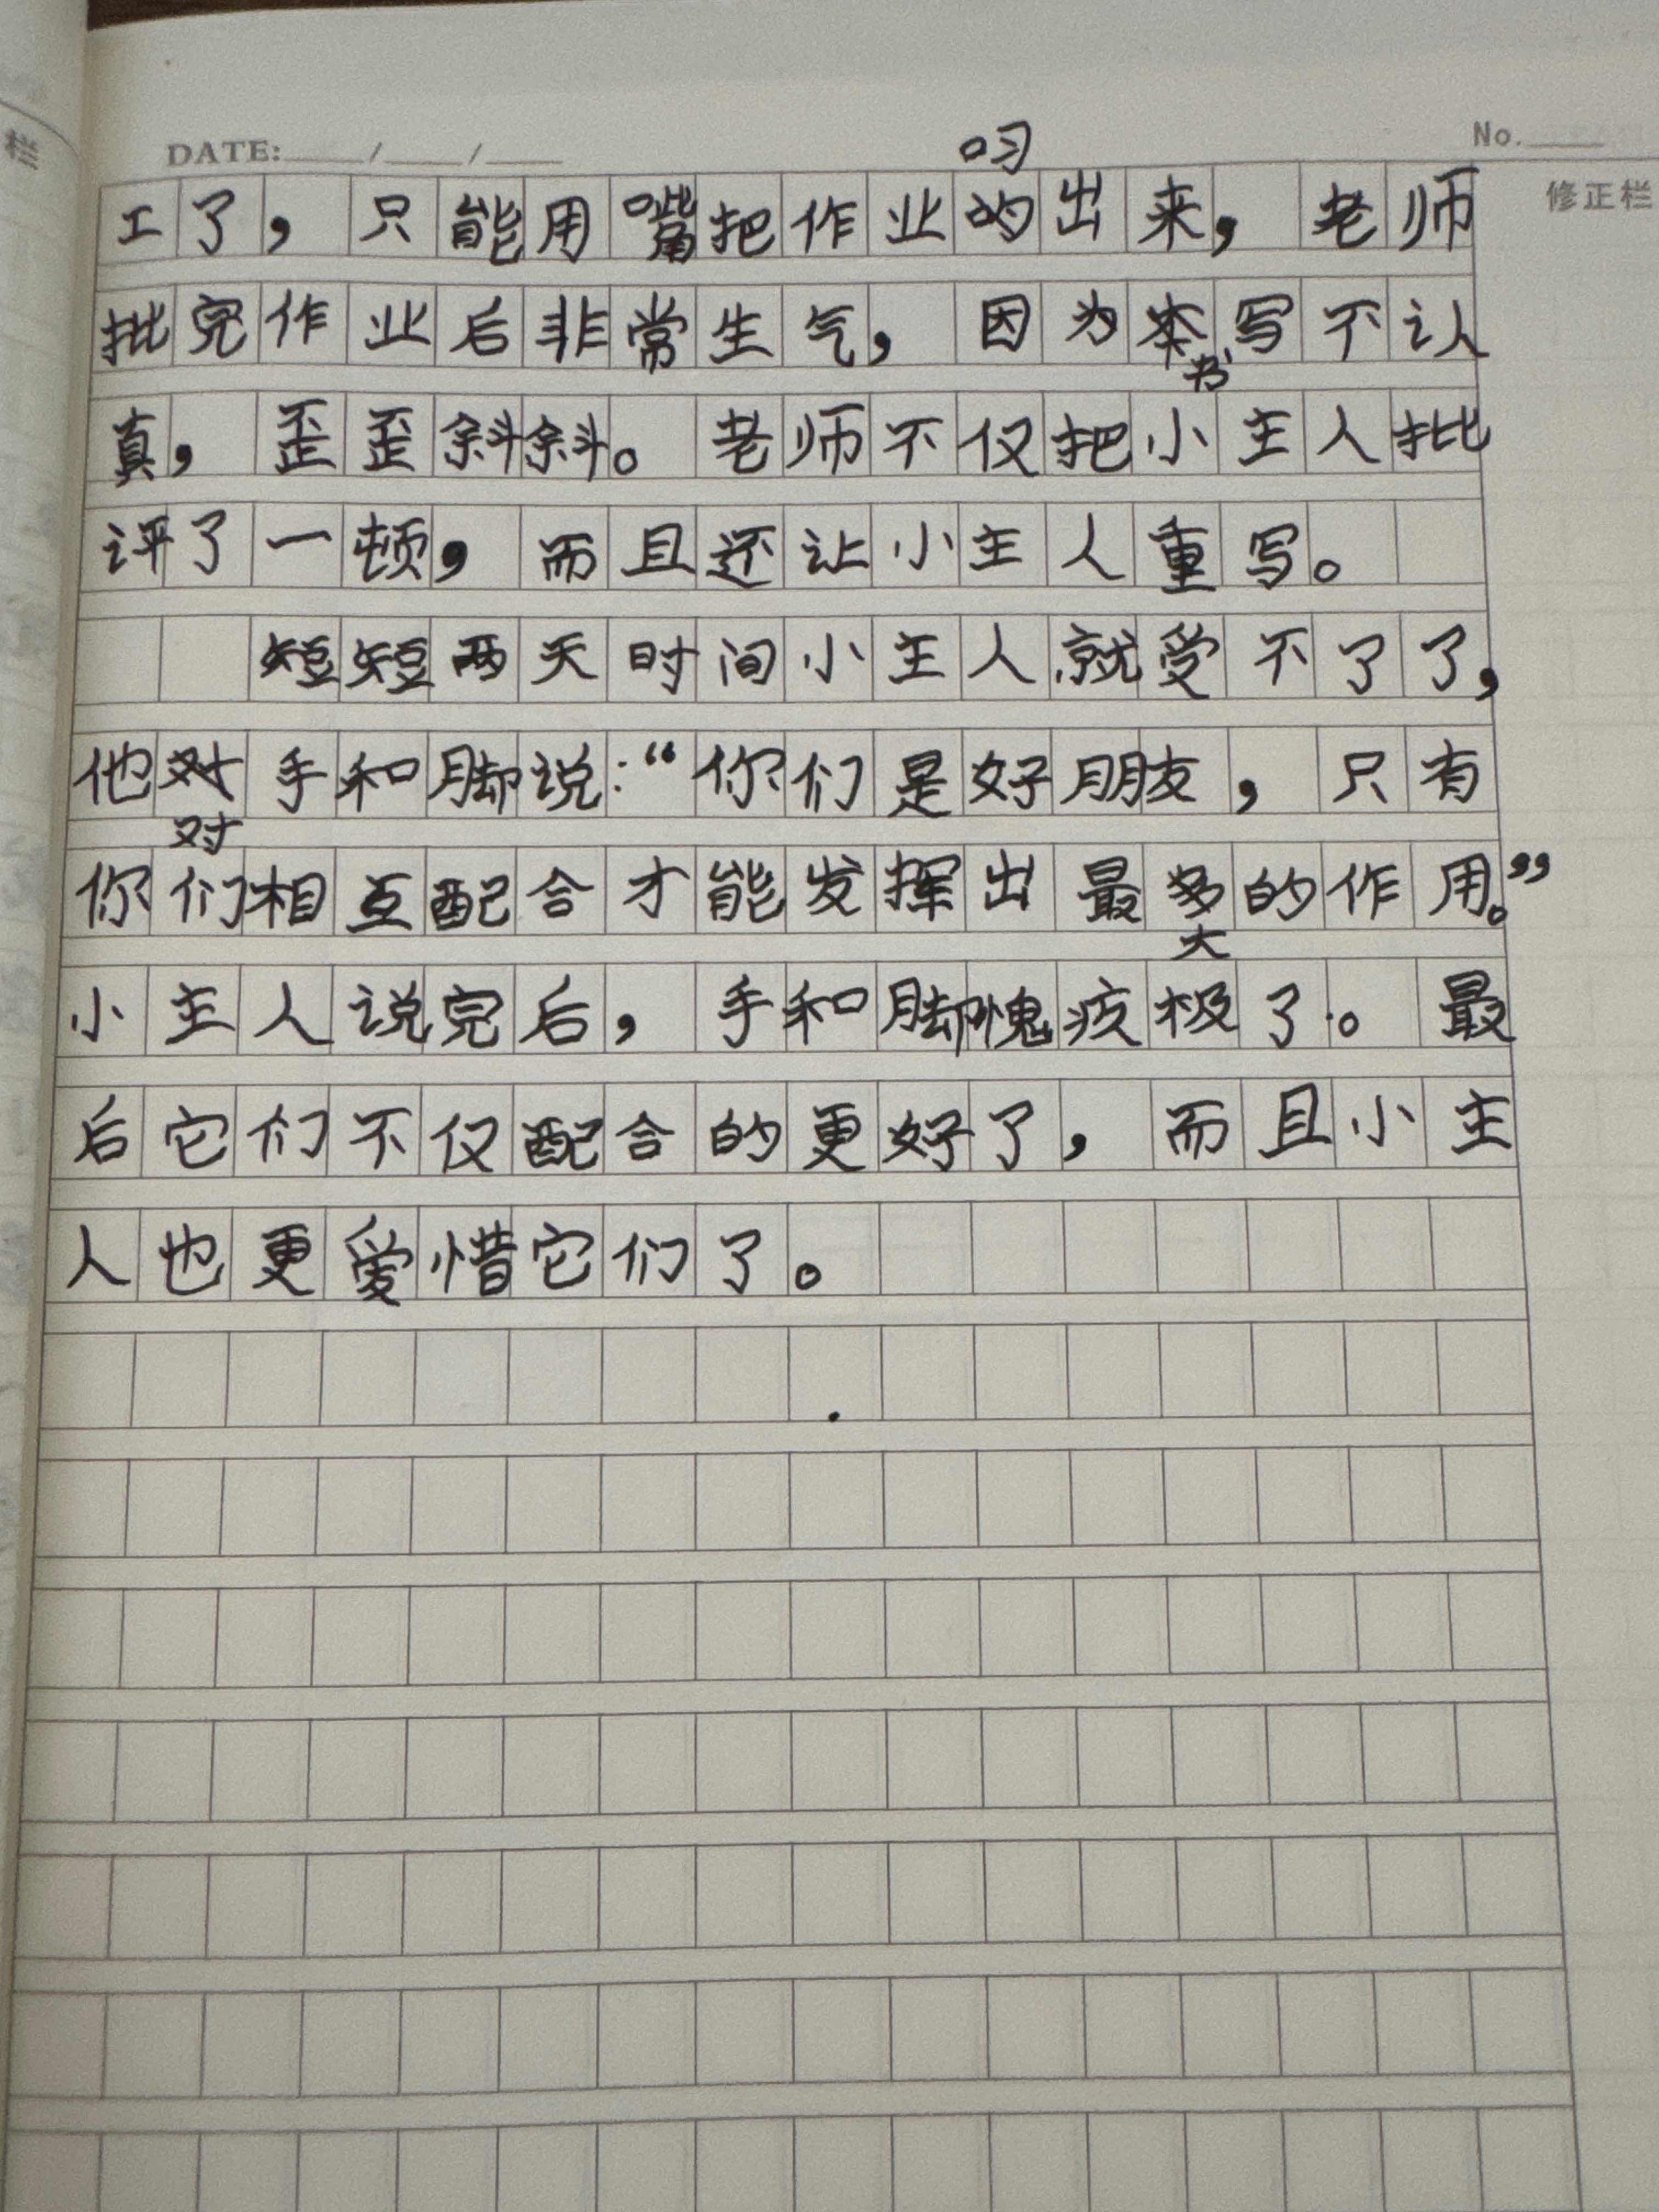 栏
DATE: / /
No.
修正栏
叼
工了，只能用嘴把作业的出来，老师
批完作业后非常生气，因为本写不认
书
真，歪歪斜斜。老师不仅把小主人批
评了一顿，而且还让小主人重写。
短短两天时间小主人就受不了了，
他对手和脚说：“你们是好朋友，只有
对
你们相互配合才能发挥出最多的作用。”
大
小主人说完后，手和脚愧疚极了。最
后它们不仅配合的更好了，而且小主
人也更爱惜它们了。